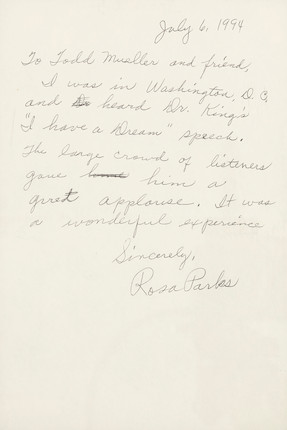 July 6, 1994
To Todd Mueller and friend,
I was in Washington, D.C,
and heard Dr. King's
"I have a Dream" speech.
The large crowd of listeners
gave him a
great applouse. It was
a wonderful experience
Sincerely,
Rosa Parks